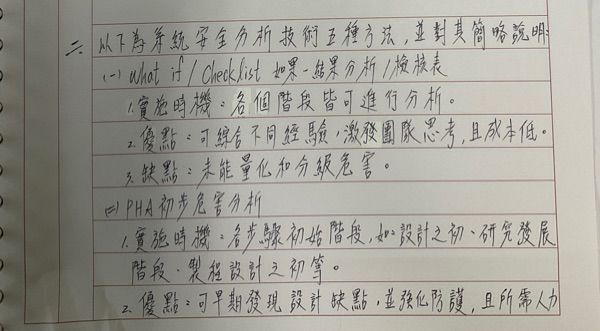 二、以下為系統安全分析技術五種方法，並對其簡略說明：
(一) What if / Checklist 如果-結果分析/檢核表
1. 實施時機：各個階段皆可進行分析。
2. 優點：可綜合不同經驗，激發團隊思考，且成本低。
3. 缺點：未能量化和分級危害。
(二) PHA 初步危害分析
1. 實施時機：各步驟初始階段，如：設計之初、研究發展
階段、製程設計之初等。
2. 優點：可早期發現設計缺點，並強化防護，且所需人力